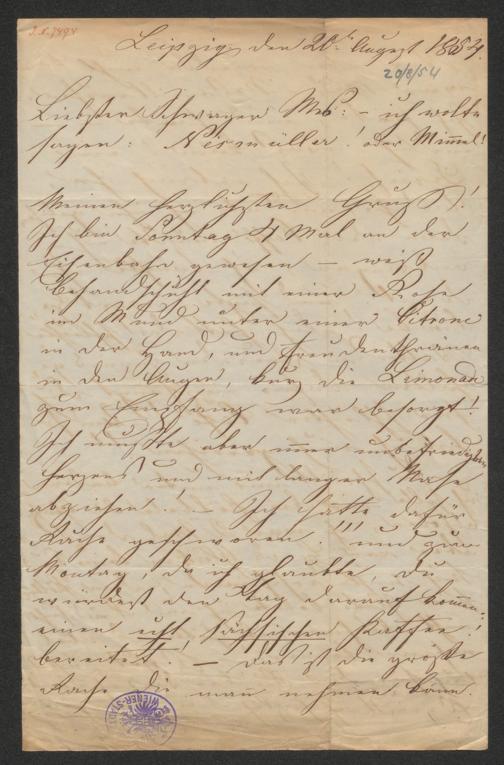 Leipzig, den 20t. August 1854.
20/8/54
Liebster Schwager Mes: – ich wollte
sagen: Nesmüller! oder Mimmel!
Meinen herzlichsten Gruß!
Ich bin Sonntag 4 Mal an der
Eisenbahn gewesen – weiß
behandschuht mit einer Rose
im Mund unter einer Citrone
in der Hand, und Freudenthränen
in den Augen, kurz die Limonade
zum Empfang war besorgt!
Ich mußte aber immer unbefriedigten
Herzens und mit langer Nase
abziehen! – Ich hatte dafür
Rache geschworen!!! und zum
Montag, da ich glaubte, Du
würdest den Tag darauf kommen:
einen echt sächsischen Kaffee!
bereitet! – das ist die größte
Rache die man nehmen kann.
WIENER-STADT